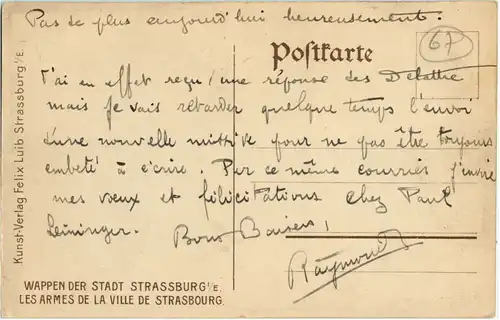 Pas de plus aujourd'hui heureusement.
Postkarte
67
J'ai en effet reçu une réponse des Delattre
mais je vais retarder quelque temps l'envoi
d'une nouvelle missive pour ne pas être toujours
embêté à écrire. Par ce même courrier j'envoie
mes vœux et félicitations chez Paul
Leininger. Bons Baisers,
Raymond
WAPPEN DER STADT STRASSBURG i/E.
LES ARMES DE LA VILLE DE STRASBOURG.
Kunst-Verlag Felix Luib Strassburg i/E.